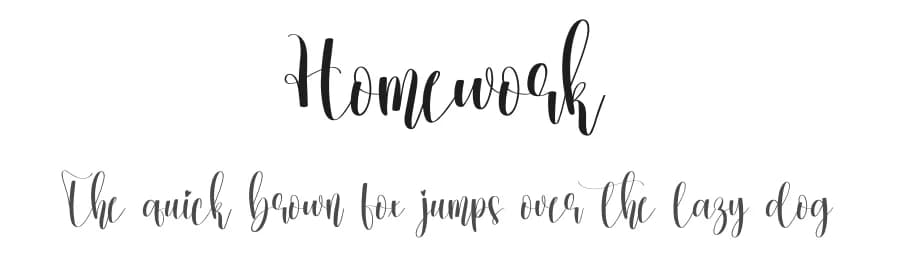 Homework
The quick brown fox jumps over the lazy dog